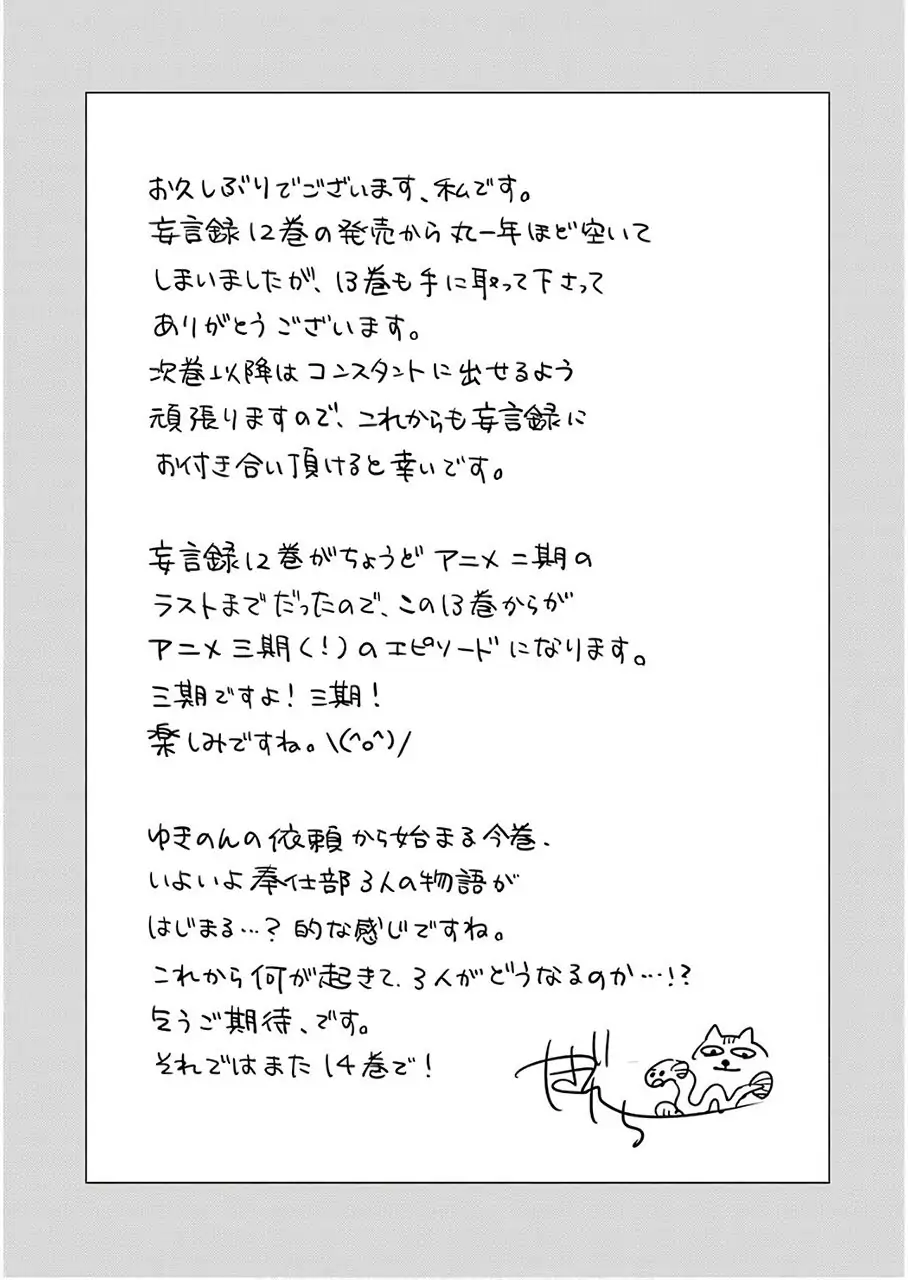 お久しぶりでございます、私です。
妄言録12巻の発売から丸一年ほど空いて
しまいましたが、13巻も手に取って下さって
ありがとうございます。
次巻以降はコンスタントに出せるよう
頑張りますので、これからも妄言録に
お付き合い頂けると幸いです。
妄言録12巻がちょうどアニメ二期の
ラストまでだったので、この13巻からが
アニメ三期(!)のエピソードになります。
三期ですよ!三期!
楽しみですね。\(^o^)/
ゆきのんの依頼から始まる今巻、
いよいよ奉仕部3人の物語が
はじまる…?的な感じですね。
これから何が起きて、3人がどうなるのか…!?
乞うご期待、です。
それではまた14巻で!